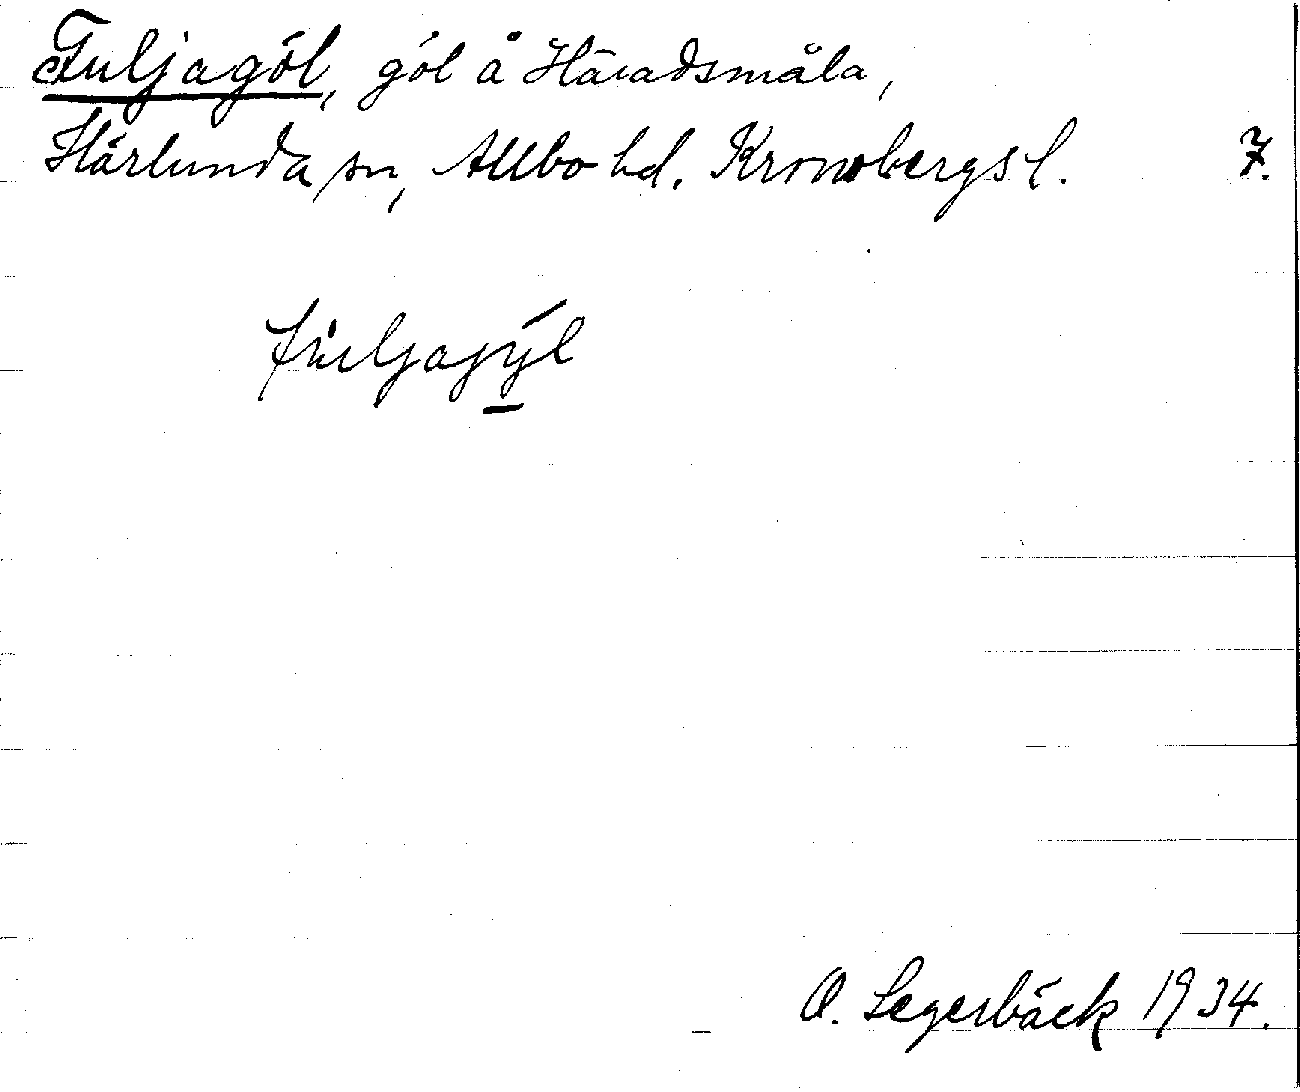 Fuljagöl, göl å Häradsmåla,
Härlunda sn, Allbo hd. Kronobergs l. 7.
fùljagýl
O. Segerbäck 1934.